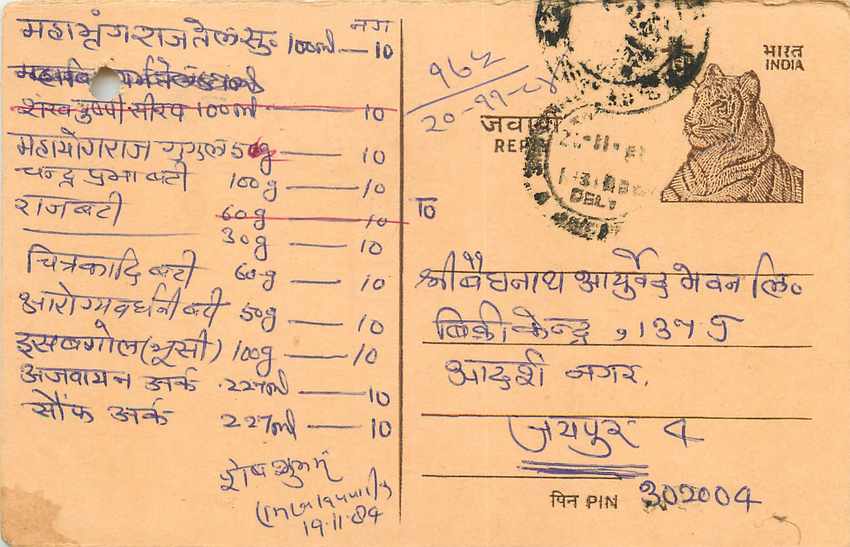 नग
महाभृंगराज तेल सु० 100ml — 10
शंखपुष्पी सीरप 100ml — 10
महायोगराज गुगुल 50g — 10
चन्द्र प्रभा बटी 100g — 10
राजबटी 60g — 10
30g — 10
चित्रकादि बटी 60g — 10
आरोग्यवर्धनी बटी 50g — 10
इसबगोल (भूसी) 100g — 10
अजवायन अर्क 227ml — 10
सौंफ अर्क 227ml — 10
शेष शुभम्
19.11.84
१६५
२०-११-८४
भारत
INDIA
जवाबी
REP
TO
श्री बैद्यनाथ आयुर्वेद भवन लि०
बिक्री केन्द्र,
आदर्श नगर,
जयपुर 4
पिन PIN 302004